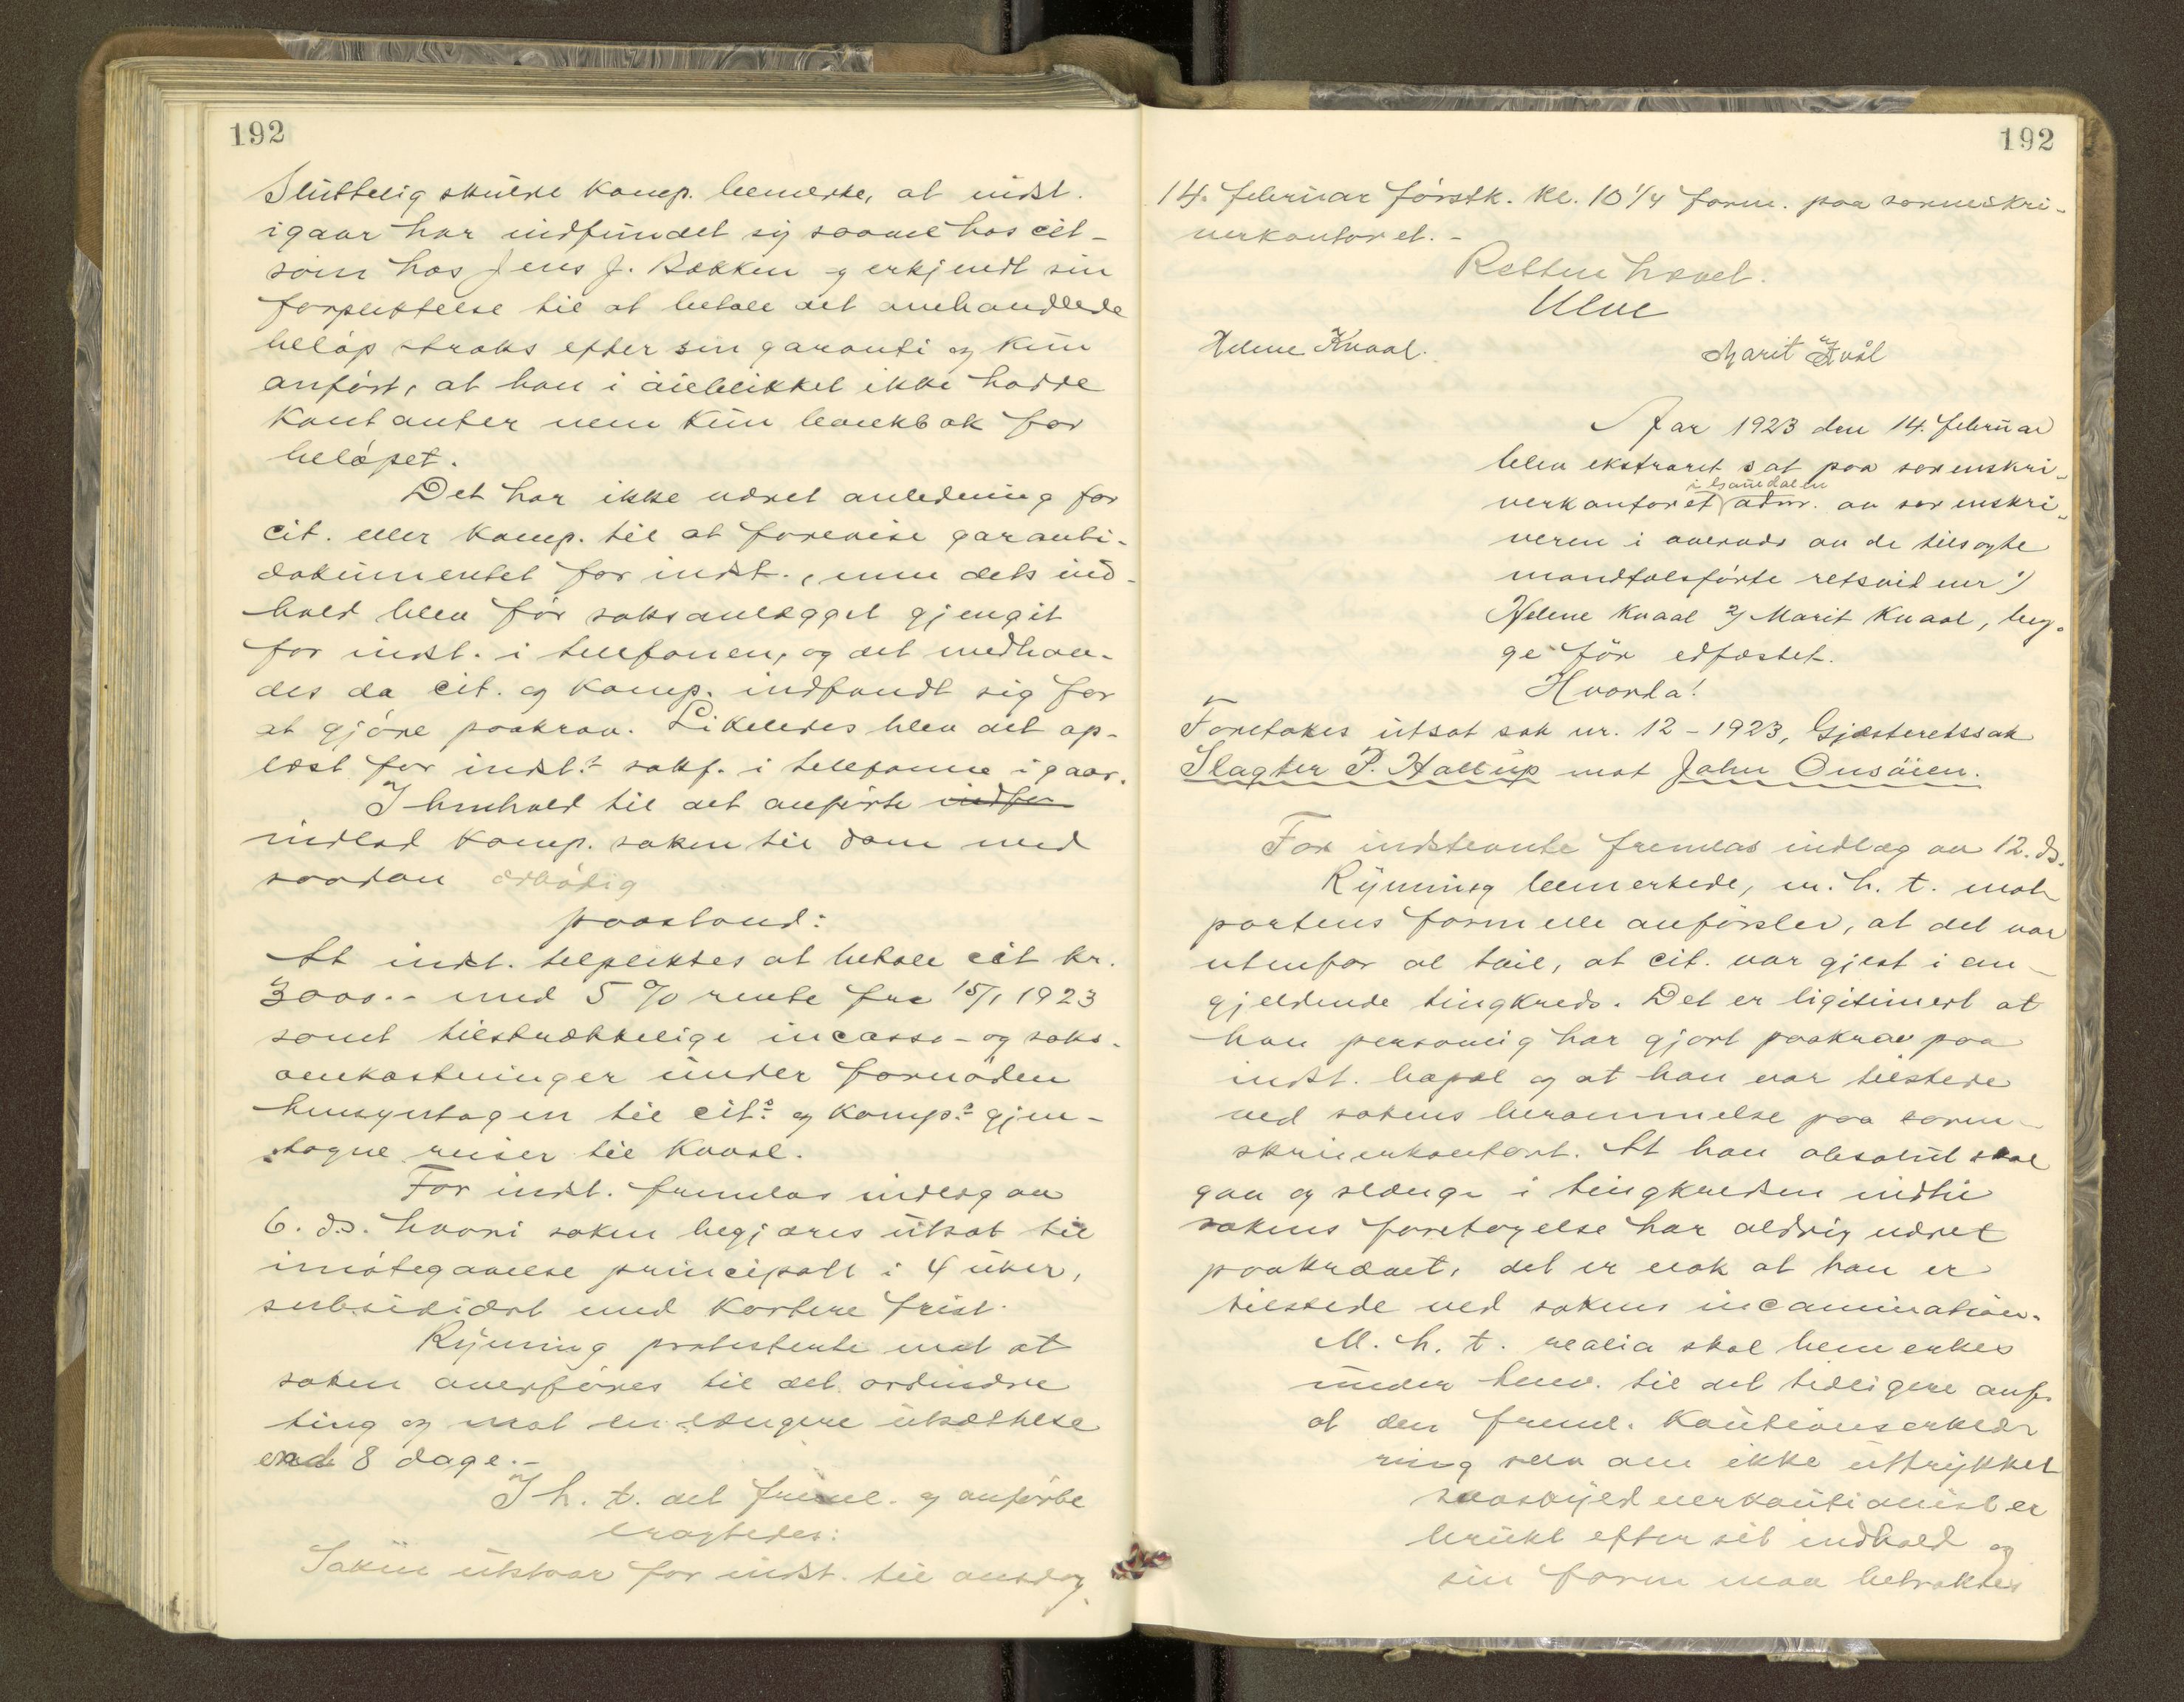 192
Sluttelig skulde komp. bemerke, at indst.
igaar har indfundet sig saavel hos cit-
som hos Jens J. Bakken og erkjendt sin
forpliktelse til at betale det omhandlede
beløp straks efter sin garanti og kun
anført, at han i øieblikket ikke hadde
kontanter men kun bankbok for
beløpet.
Det har ikke været anledning for
cit. eller komp. til at forevise garanti-
dokumentet for indst., men dets ind-
hold blev før saksanlægget gjengit
for indst. i telefonen, og det medhav-
des da cit. og komp. indfandt sig for
at gjøre paakrav. Likeledes blev det op-
læst for indst.s sakf. i telefonen igaar.
I henhold til det anførte indfor
indlod komp. saken til dom med
saadan ærbødig
paastand:
At indst. tilpliktes at betale cit kr.
3000.- med 5 % rente fra 15/1 1923
samt tilstrækkelige incasso- og saks-
omkostninger under fornøden
hensyntagen til cit.s og komp.s gjen-
tagne reiser til Kvaal.
For indst. fremlas indlæg av
6. ds. hvori saken begjæres utsat til
imøtegaaelse principalt i 4 uker,
subsidiært med kortere frist.
Rynning protesterte mot at
saken overføres til det ordinære
ting og mot en længere utsættelse
end 8 dage.-
I h. t. det freml. og anførte
eragtedes:
Saken utstaar for indst. til onsdag
192
14. februar førstk. kl. 10 1/4 form. paa sorenskri-
verkontoret.-
Retten hævet.
Ulve
Helene Kvaal.
Marit Kvål
Aar 1923 den 14. februar
blev ekstraret sat paa sorenskri-
i Gauldalen
verkontoret adm. av sorenskri-
veren i overvær av de tilsagte
mandtalsførte retsvidner 1/
Helene Kvaal 2/ Marit Kvaal, beg-
ge før edfæstet.
Hvorda!
Foretokes utsat sak nr. 12 - 1923, Gjæsteretssak
Slagter P. Hallup mot John Onsøien.
For indstevnte fremlas indlæg av 12. ds.
Rynning bemerkede, m. h. t. mot
partens formelle anførsler, at det var
utenfor al tvil, at cit. var gjest i an-
gjeldende tingkreds. Det er ligitimert at
han personlig har gjort paakrav paa
indst. bopæl og at han var tilstede
ved sakens berammelse paa soren-
skriverkontoret. At han absolut skal
gaa og slænge i tingkredsen indtil
sakens foretagelse har aldrig været
paakrævet, det er nok at han er
tilstede ved sakens incamination.
M. h. t. realia skal bemerkes
under henv. til det tidligere anf.
at den freml. kautionserklæ
ring selv om ikke uttrykket
selvskyldnerkautionist er
brukt efter sit indhold og
sin form maa betraktes